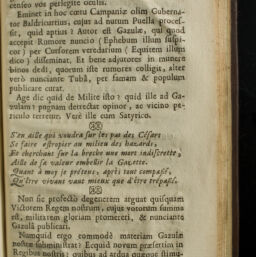 censeo vos perlegite oculis.
Eminet in hoc cœtu Campaniæ olim Guberna-
tor Baldricurtius, cujus ad nutum Puella proces-
sit, quid aptius? Autor est Gazulæ, qui quod
accepit Rumore nuncio (Ephebum illum suspi-
cor) per Cursorem veredarium (Equitem illum
dico) disseminat. Et bene adjutores in munere
binos dedi, quorum iste rumores colligit, alter
verò nunciante Tubâ, per famam & populum
publicare curat.
Age dic quid de Milite isto? quid ille ad Ga-
zulam? pugnam detrectat opinor, ac vicino pe-
riculo terretur. Verè ille eum Satyrico.
S'en aille qui voudra sur les pas des Césars
Se faire estropier au milieu des hazards,
Et cherchant sur la breche une mort indiscrette,
Aille de sa valeur embellir la Gazette.
Quant à moy je prétens, après tout compassé,
Qu'être vivant vaut mieux que d'être trépassé.
Non sic profectò degenerem arguit quisquam
Victorem Regem nostrum, cujus votorum summa
est, militatem gloriam promereri, & nunciante
Gazulâ publicari.
Numquid ergo commodè materiam Gazulæ
nostræ subministrat? Ecquid novum præsertim in